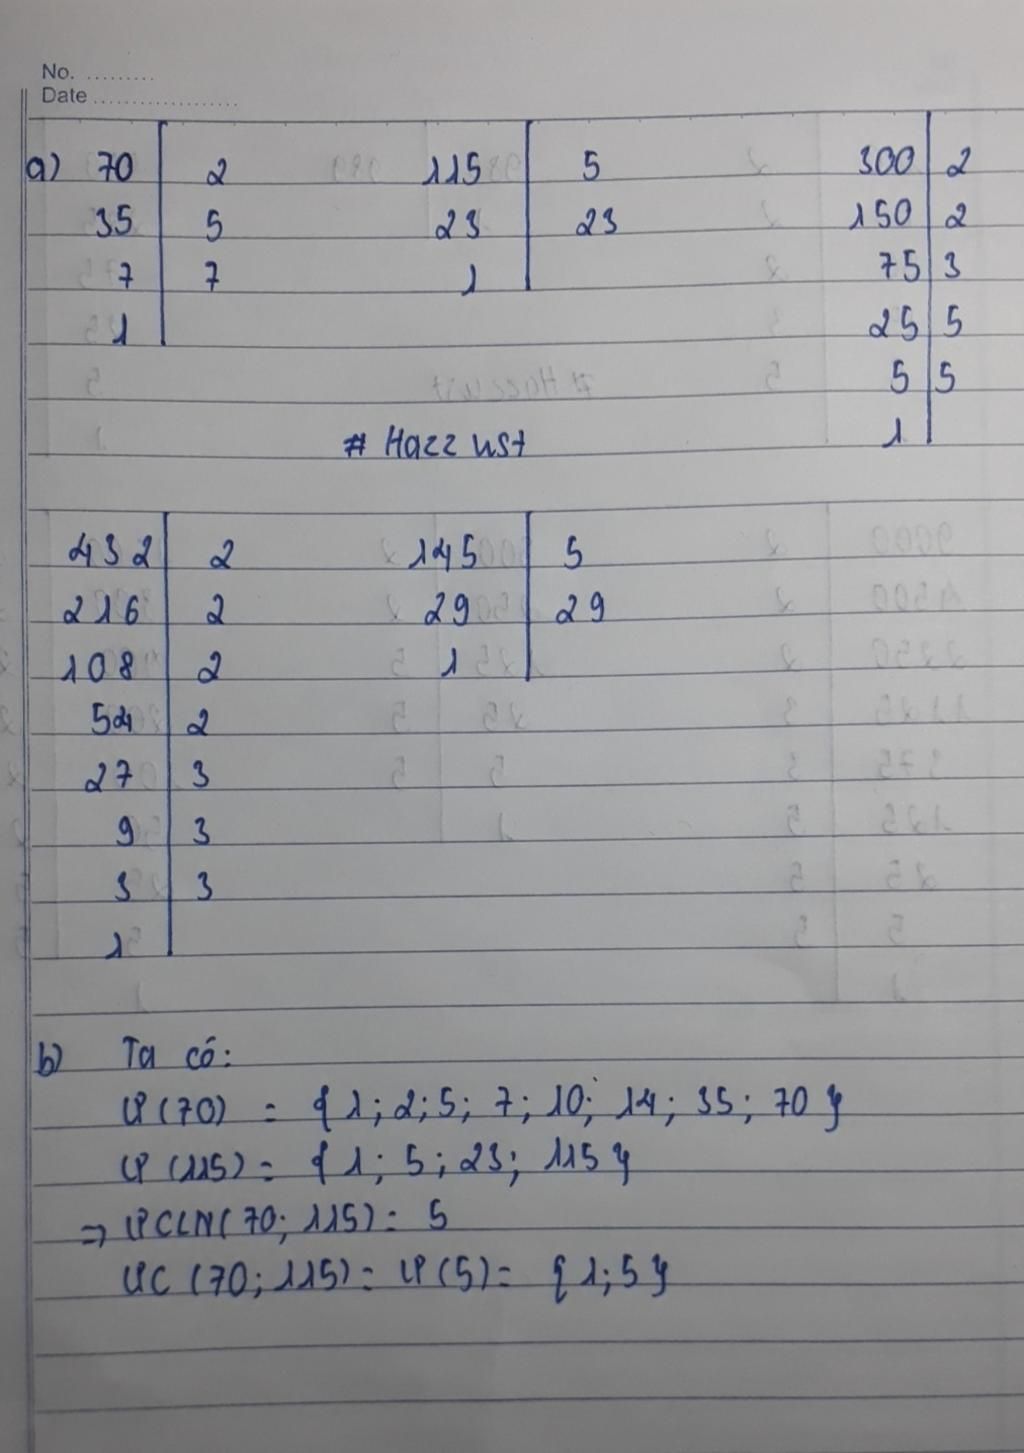 No. .........
Date ...................
a) 70 2 115 5 300 2
35 5 23 23 150 2
7 7 1 75 3
1 25 5
5 5
# Hazz ust 1
432 2 145 5
216 2 29 29
108 2 1
54 2
27 3
9 3
3 3
1
b) Ta có:
Ư(70) = { 1; 2; 5; 7; 10; 14; 35; 70 }
Ư(115) = { 1; 5; 23; 115 }
=> ƯCLN(70; 115) = 5
ƯC (70; 115) = Ư(5) = { 1; 5 }